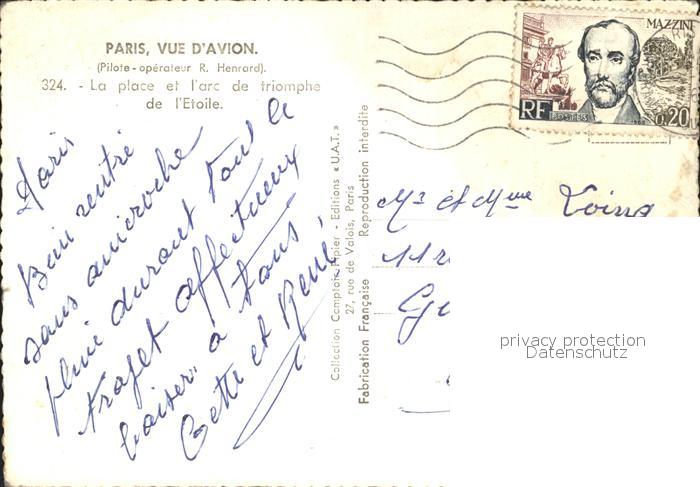 PARIS, VUE D'AVION.
(Pilote-opérateur R. Henrard).
324. - La place et l'arc de triomphe
de l'Etoile.
Paris
Bien rentré
sans anicroche
pluie durant tout le
trajet affectueux
baisers à tous
et René
Collection Comptoir Papier - Editions « U.A.T. »
27, rue de Valois, Paris
Fabrication Française Reproduction interdite
MAZZINI
RF
POSTES
0,20
Mr et Mme
11 r
privacy protection
Datenschutz